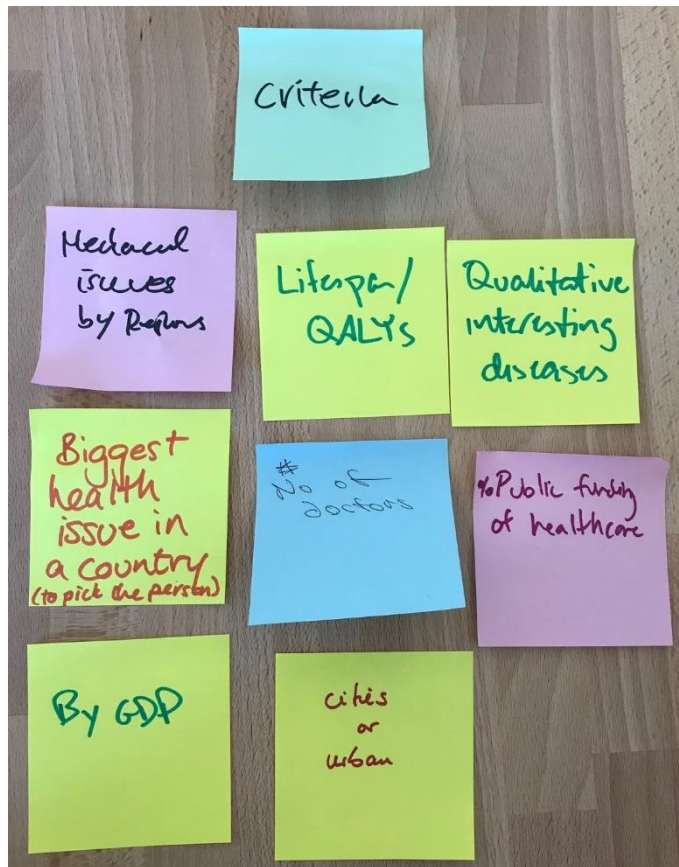 Criteria
Medacul
issues
by Regions
Lifespan/
QALYs
Qualitative
interesting
diseases
Biggest
health
issue in
a country
(to pick the person)
#
No of
doctors
% Public funding
of healthcare
By GDP
cities
or
urban